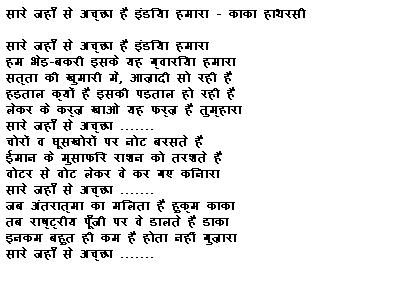 सारे जहाँ से अच्छा है इंडिया हमारा - काका हाथरसी
सारे जहाँ से अच्छा है इंडिया हमारा
हम भेड़-बकरी इसके यह ग्वारिया हमारा
सत्ता की खुमारी में, आज़ादी सो रही है
हड़ताल क्यों है इसकी पड़ताल हो रही है
लेकर के कर्ज़ खाओ यह फर्ज़ है तुम्हारा
सारे जहाँ से अच्छा .......
चोरों व घूसखोरों पर नोट बरसते हैं
ईमान के मुसाफिर राशन को तरशते हैं
वोटर से वोट लेकर वे कर गए किनारा
सारे जहाँ से अच्छा .......
जब अंतरात्मा का मिलता है हुक्म काका
तब राष्ट्रीय पूँजी पर वे डालते हैं डाका
इनकम बहुत ही कम है होता नहीं गुज़ारा
सारे जहाँ से अच्छा .......